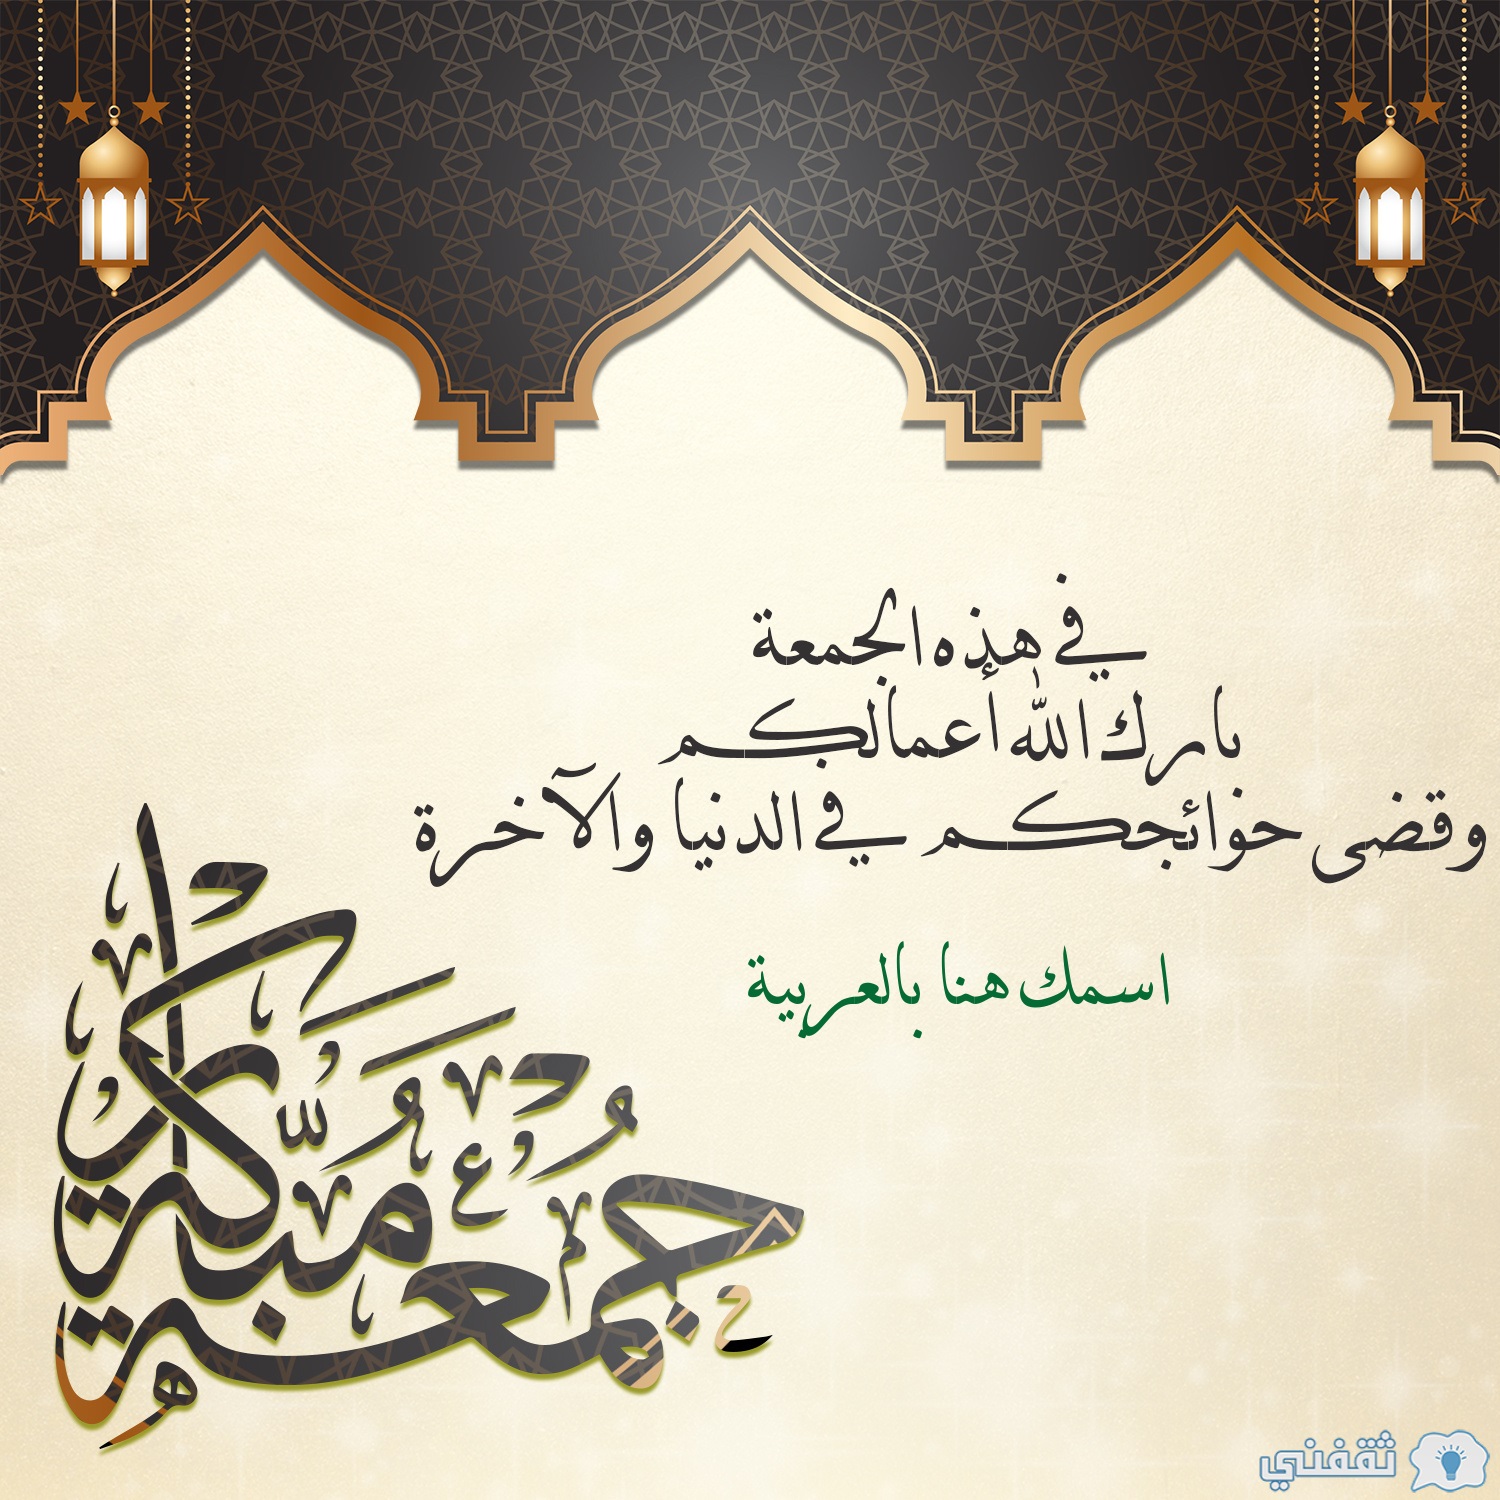 في هذه الجمعة
بارك الله أعمالكم
وقضى حوائجكم في الدنيا والآخرة
اسمك هنا بالعربية
جمعة مباركة
ثقفني